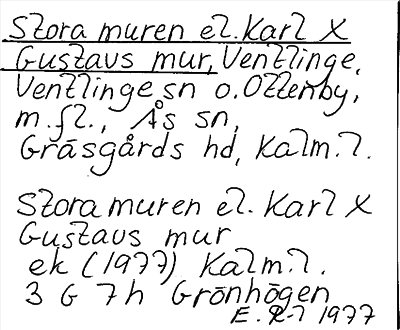 Stora muren el. Karl X
Gustavs mur, Ventlinge,
Ventlinge sn o. Ottenby,
m.fl., Ås sn,
Gräsgårds hd, Kalm.l.
Stora muren el. Karl X
Gustavs mur
ek (1977) Kalm.l.
3 G 7h Grönhögen
1977